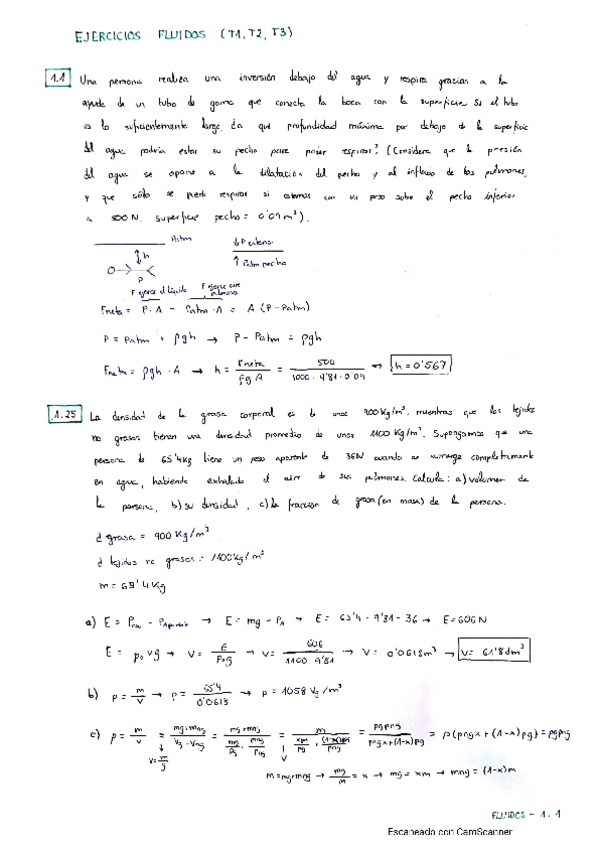 EJERCICIOS FLUIDOS (T1, T2, T3)
1.1 Una persona realiza una inversión debajo del agua y respira gracias a la
ayuda de un tubo de goma que conecta la boca con la superficie. Si el tubo
es lo suficientemente largo, ¿a qué profundidad máxima por debajo de la superficie
del agua podría estar su pecho para poder respirar? (Considera que la presión
del agua se opone a la dilatación del pecho y al inflado de los pulmones,
y que sólo se puede respirar si estamos con un peso sobre el pecho inferior
a 500N. superficie pecho = 0'09 m²).
Patm
h
P
↓P externa
↑Patm pecho
F ejerce el líquido F ejerce con
Fneta = P·A - Patm·A = A (P-Patm)
P = Patm + ρgh → P - Patm = ρgh
Fneta = ρgh·A → h = Fneta / ρgA = 500 / 1000·9'81·0'09 → h=0'567
1.25 La densidad de la grasa corporal es de unos 900 Kg/m³, mientras que los tejidos
no grasos tienen una densidad promedio de unos 1100 Kg/m³. Supongamos que una
persona de 65'4Kg tiene un peso aparente de 36N cuando se sumerge completamente
en agua, habiendo exhalado el aire de sus pulmones. Calcula: a) volumen de
la persona, b) su densidad, c) la fracción de grasa (en masa) de la persona.
d grasa = 900 Kg/m³
d tejidos no grasos = 1100 Kg/m³
m = 65'4 Kg
a) E = - PAparente → E = mg - PA → E = 65'4 · 9'81 - 36 → E = 606 N
E = ρo Vg → V = E / ρo g → V = 606 / 1100 · 9'81 → V = 0'0618 m³ → V = 61'8 dm³
b) ρ = m / V → ρ = 65'4 / 0'0618 → ρ = 1058 Kg/m³
c) ρ = m / V = = = = = ρ(ρng x + (1-x)ρg) = ρgρng
m = mg+mng → mg / m = x → mg = xm → mng = (1-x)m
FLUIDOS - 1.1
Escaneado con CamScanner